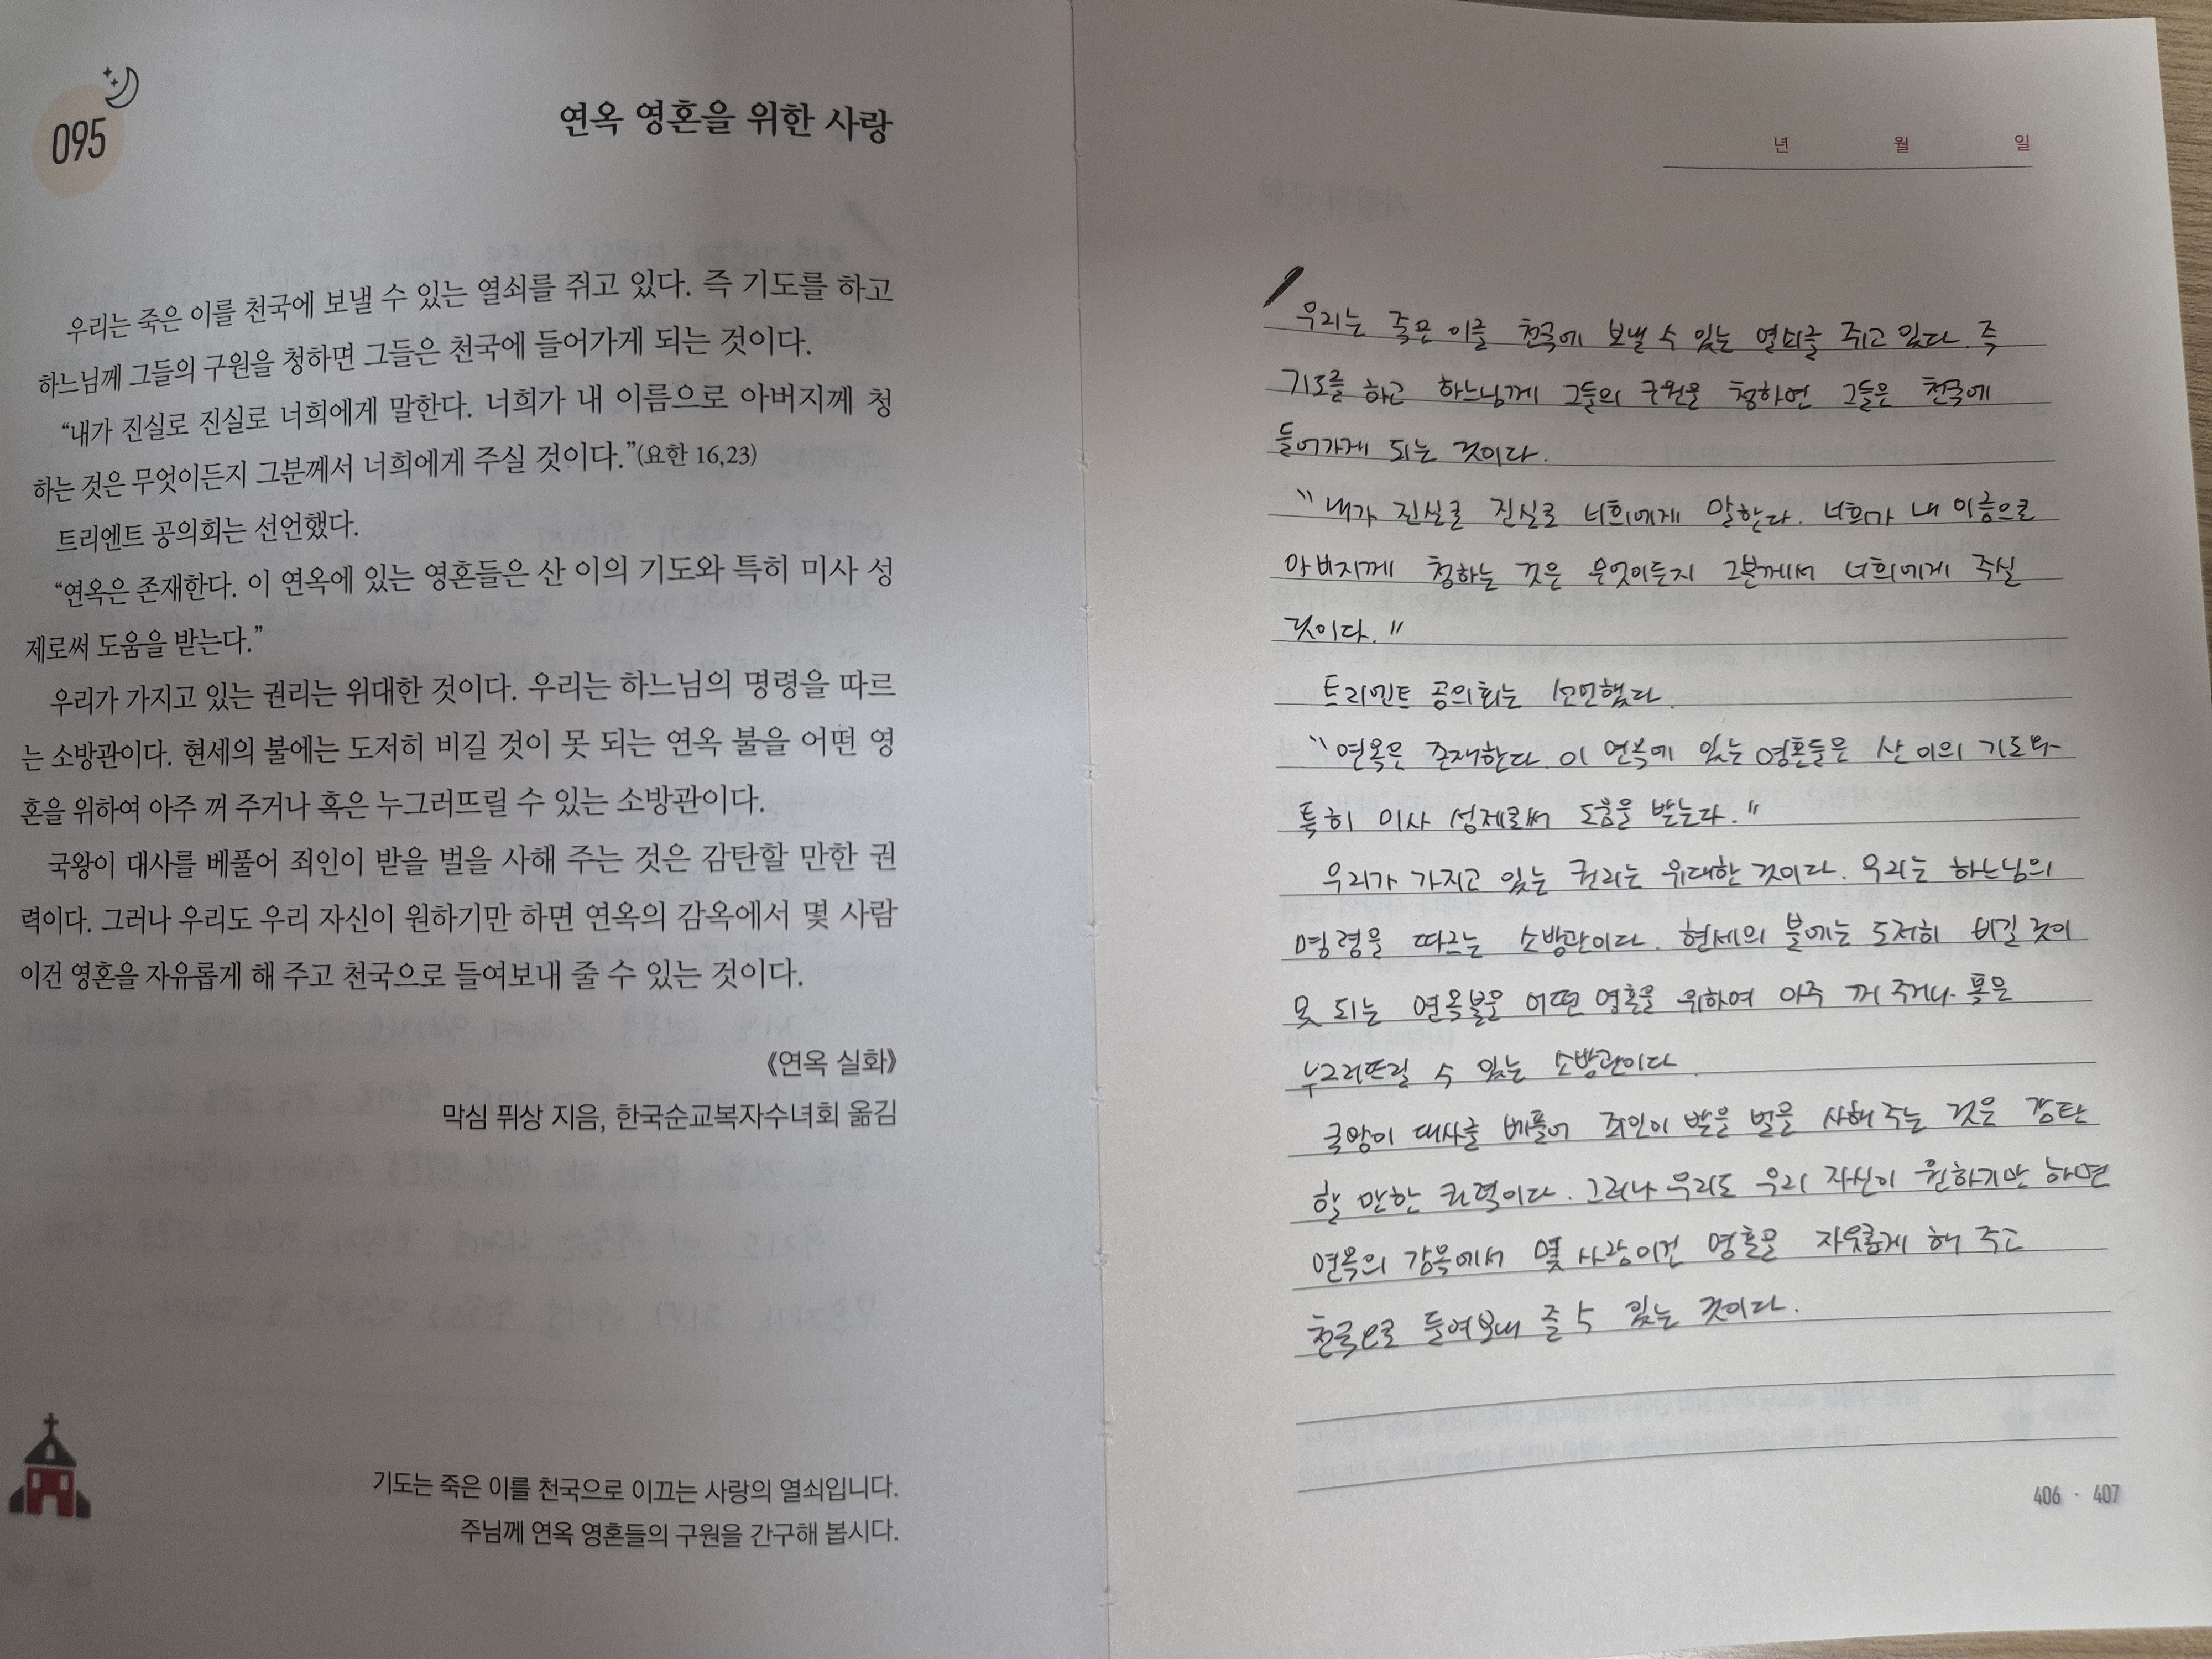 095
연옥 영혼을 위한 사랑
우리는 죽은 이를 천국에 보낼 수 있는 열쇠를 쥐고 있다. 즉 기도를 하고
하느님께 그들의 구원을 청하면 그들은 천국에 들어가게 되는 것이다.
“내가 진실로 진실로 너희에게 말한다. 너희가 내 이름으로 아버지께 청
하는 것은 무엇이든지 그분께서 너희에게 주실 것이다.”(요한 16,23)
트리엔트 공의회는 선언했다.
“연옥은 존재한다. 이 연옥에 있는 영혼들은 산 이의 기도와 특히 미사 성
제로써 도움을 받는다.”
우리가 가지고 있는 권리는 위대한 것이다. 우리는 하느님의 명령을 따르
는 소방관이다. 현세의 불에는 도저히 비길 것이 못 되는 연옥 불을 어떤 영
혼을 위하여 아주 꺼 주거나 혹은 누그러뜨릴 수 있는 소방관이다.
국왕이 대사를 베풀어 죄인이 받을 벌을 사해 주는 것은 감탄할 만한 권
력이다. 그러나 우리도 우리 자신이 원하기만 하면 연옥의 감옥에서 몇 사람
이건 영혼을 자유롭게 해 주고 천국으로 들여보내 줄 수 있는 것이다.
《연옥 실화》
막심 퓌상 지음, 한국순교복자수녀회 옮김
기도는 죽은 이를 천국으로 이끄는 사랑의 열쇠입니다.
주님께 연옥 영혼들의 구원을 간구해 봅시다.
년 월 일
우리는 죽은 이를 천국에 보낼 수 있는 열쇠를 쥐고 있다. 즉
기도를 하고 하느님께 그들의 구원을 청하면 그들은 천국에
들어가게 되는 것이다.
"내가 진실로 진실로 너희에게 말한다. 너희가 내 이름으로
아버지께 청하는 것은 무엇이든지 그분께서 너희에게 주실
것이다."
트리엔트 공의회는 선언했다.
"연옥은 존재한다. 이 연옥에 있는 영혼들은 산 이의 기도와
특히 미사 성제로써 도움을 받는다."
우리가 가지고 있는 권리는 위대한 것이다. 우리는 하느님의
명령을 따르는 소방관이다. 현세의 불에는 도저히 비길 것이
못 되는 연옥불을 어떤 영혼을 위하여 아주 꺼 주거나 혹은
누그러뜨릴 수 있는 소방관이다.
국왕이 대사를 베풀어 죄인이 받을 벌을 사해 주는 것은 감탄
할 만한 권력이다. 그러나 우리도 우리 자신이 원하기만 하면
연옥의 감옥에서 몇 사람이건 영혼을 자유롭게 해 주고
천국으로 들여보내 줄 수 있는 것이다.
406 · 407